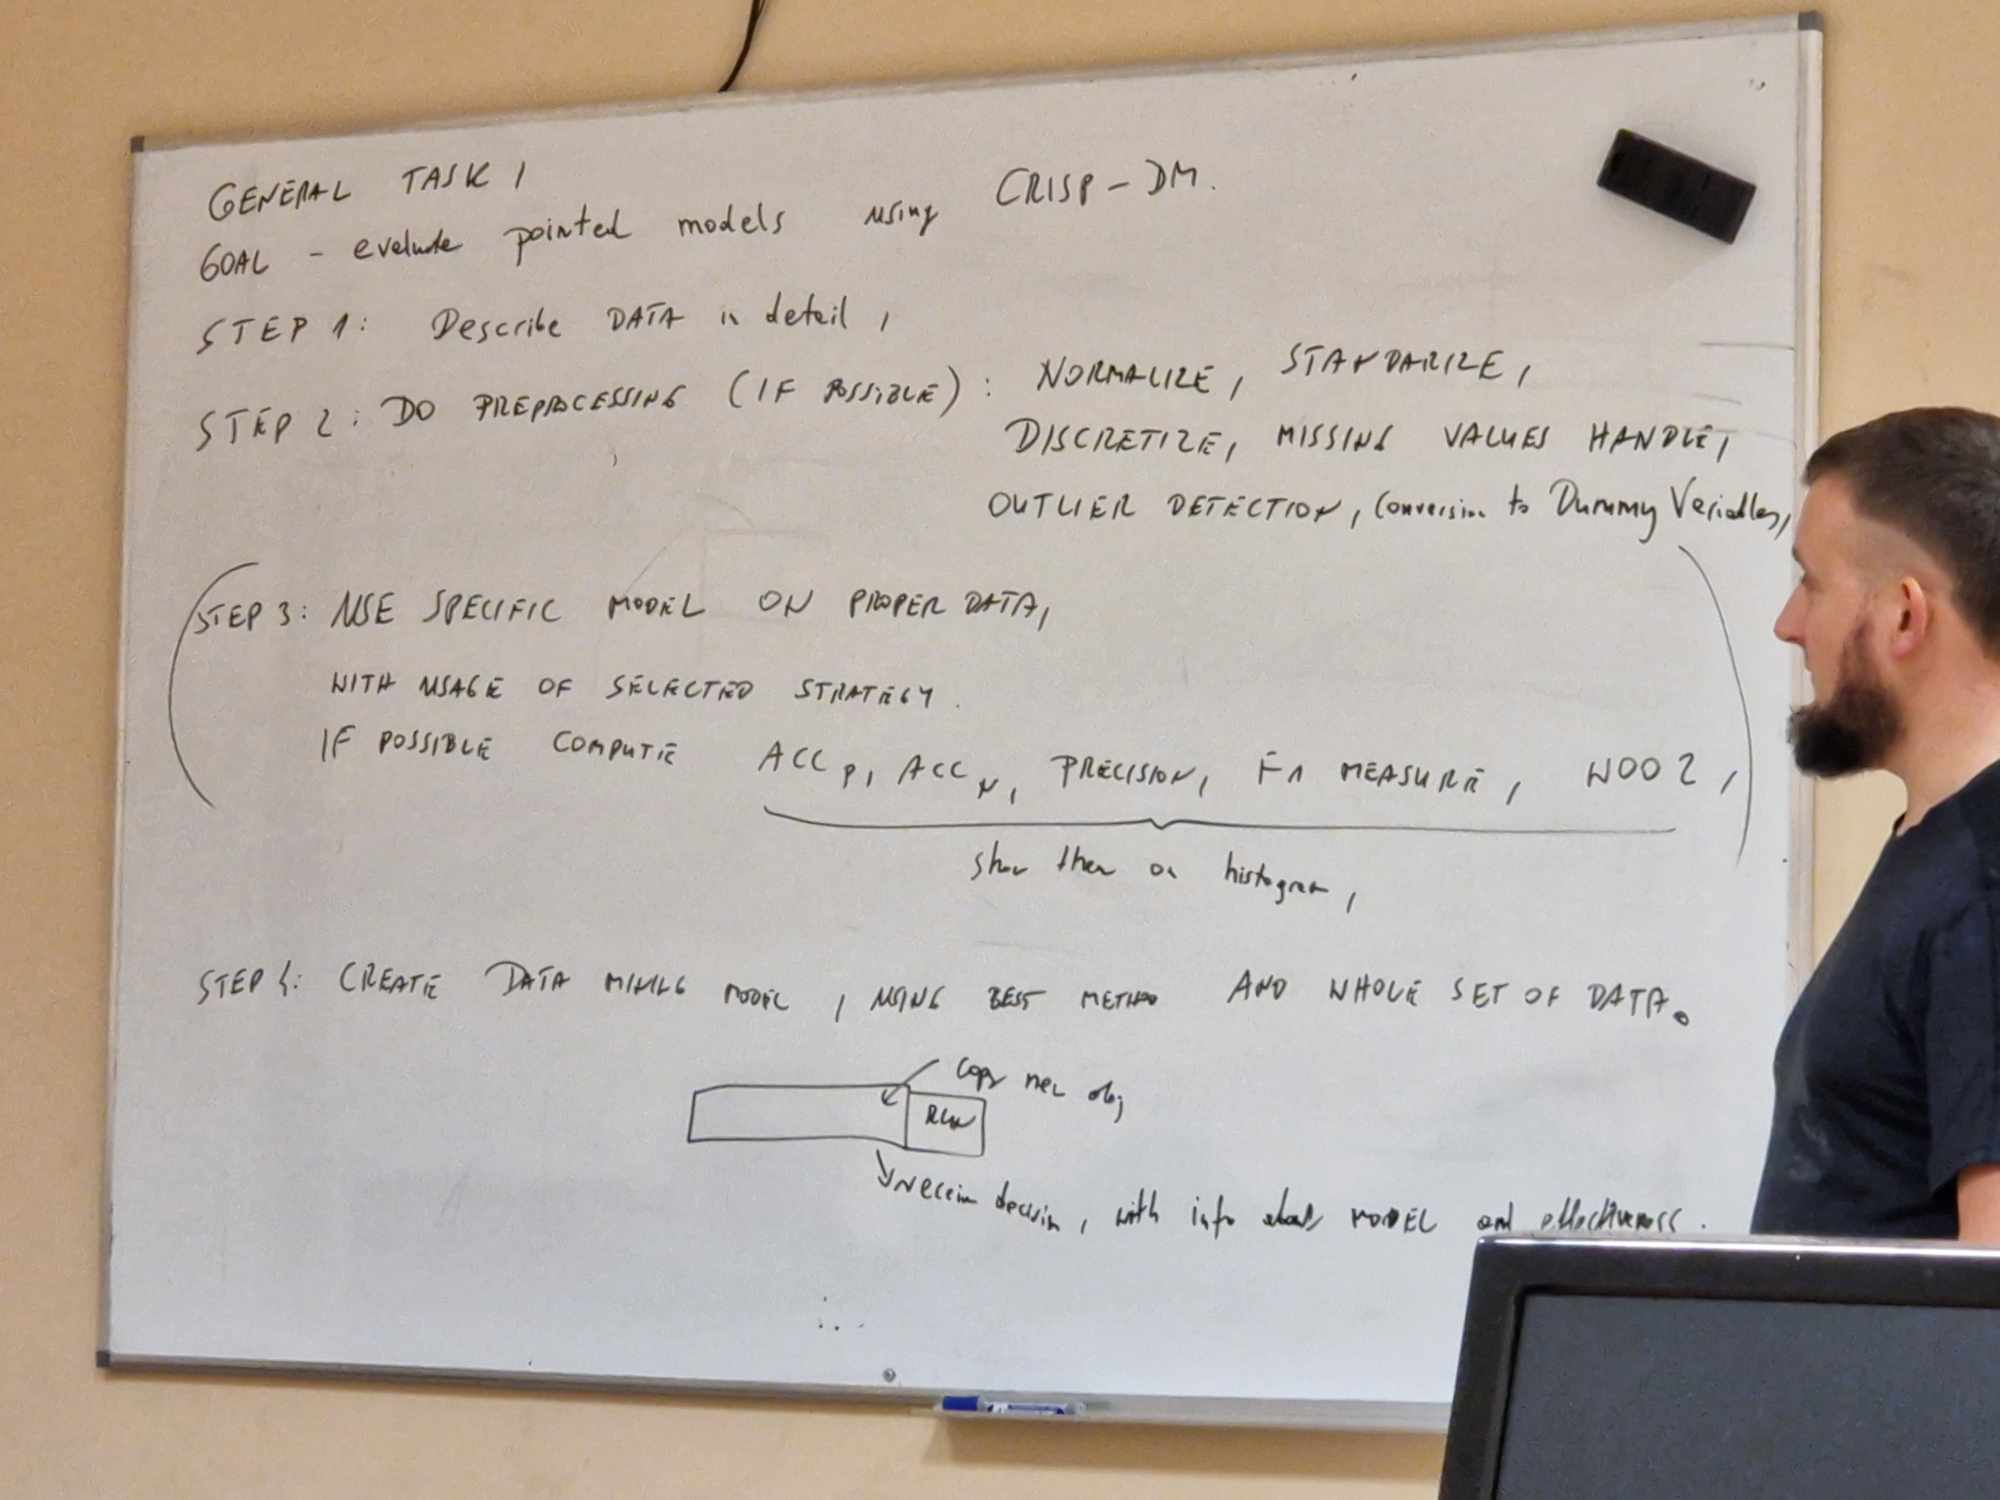 GENERAL TASK 1
GOAL - evaluate pointed models using CRISP-DM.
STEP 1: Describe DATA in detail,
STEP 2: DO PREPROCESSING (IF POSSIBLE): NORMALIZE, STANDARIZE,
DISCRETIZE, MISSING VALUES HANDLE,
OUTLIER DETECTION, Conversion to Dummy Variables,
STEP 3: USE SPECIFIC MODEL ON PROPER DATA,
WITH USAGE OF SELECTED STRATEGY.
IF POSSIBLE COMPUTE ACC P, ACC N, PRECISION, F1 MEASURE,
show them on histogram,
STEP 4: CREATE DATA MINING MODEL, USING BEST METHOD AND WHOLE SET OF DATA.
Copy new obj
RUN
receive decision, with info about MODEL and effectiveness.